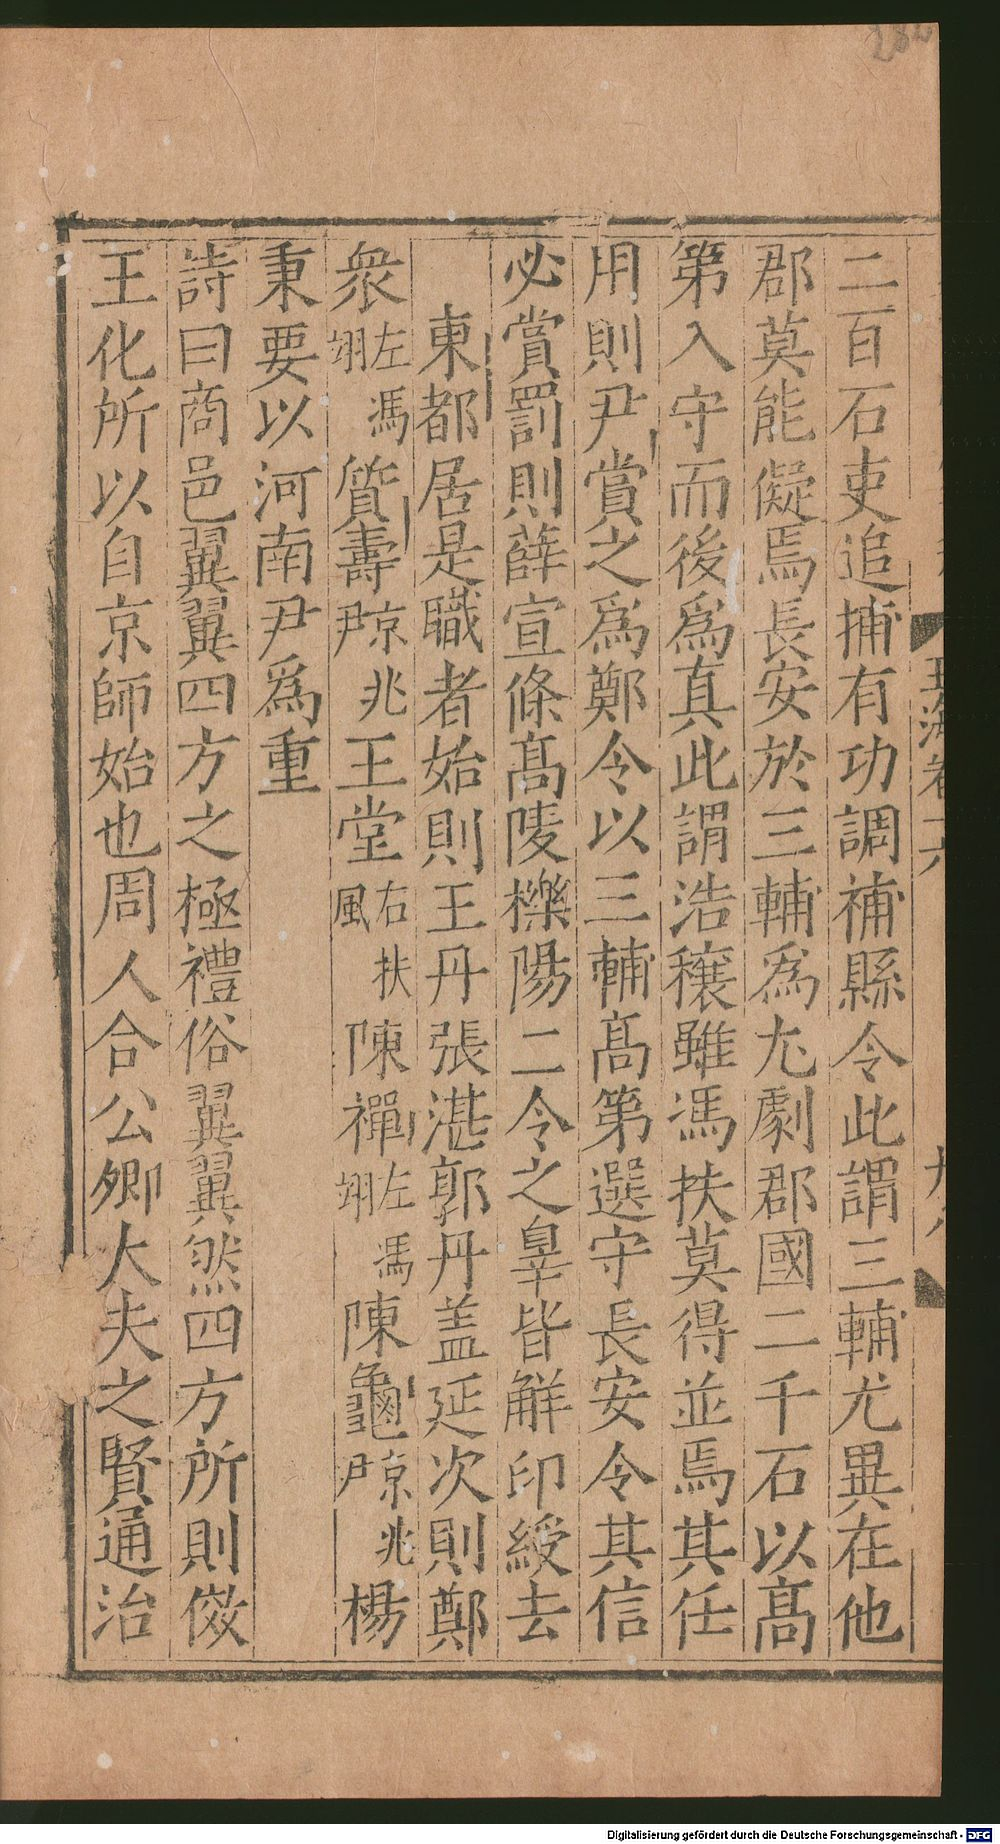 二百石吏追捕有功調補縣令此謂三輔尤異在他
郡莫能儗焉長安於三輔爲尤劇郡國二千石以髙
第入守而後爲真此謂浩穰雖馮扶莫得並焉其任
用則尹賞之爲鄭令以三輔髙第選守長安令其信
必賞罰則薛宣條髙陵櫟陽二令之辠皆解印綬去
東都居是職者始則王丹張湛郭丹盖延次則鄭
衆左馮翊質壽京兆尹王堂右扶風陳禪左馮翊陳龜京兆尹楊
秉要以河南尹爲重
詩曰商邑翼翼四方之極禮俗翼翼然四方所則傚
王化所以自京師始也周人合公卿大夫之賢通治
玉海卷
Digitalisierung gefördert durch die Deutsche Forschungsgemeinschaft - DFG